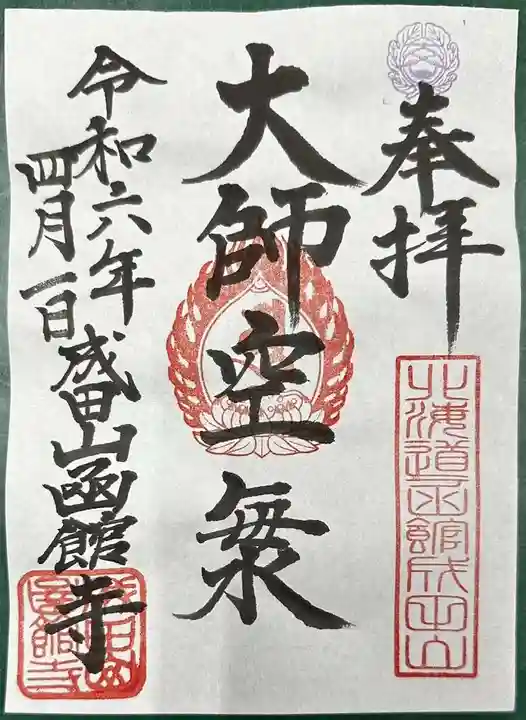 奉拝
北海道函館成田山
大師空海
令和六年
四月一日
成田山函館寺